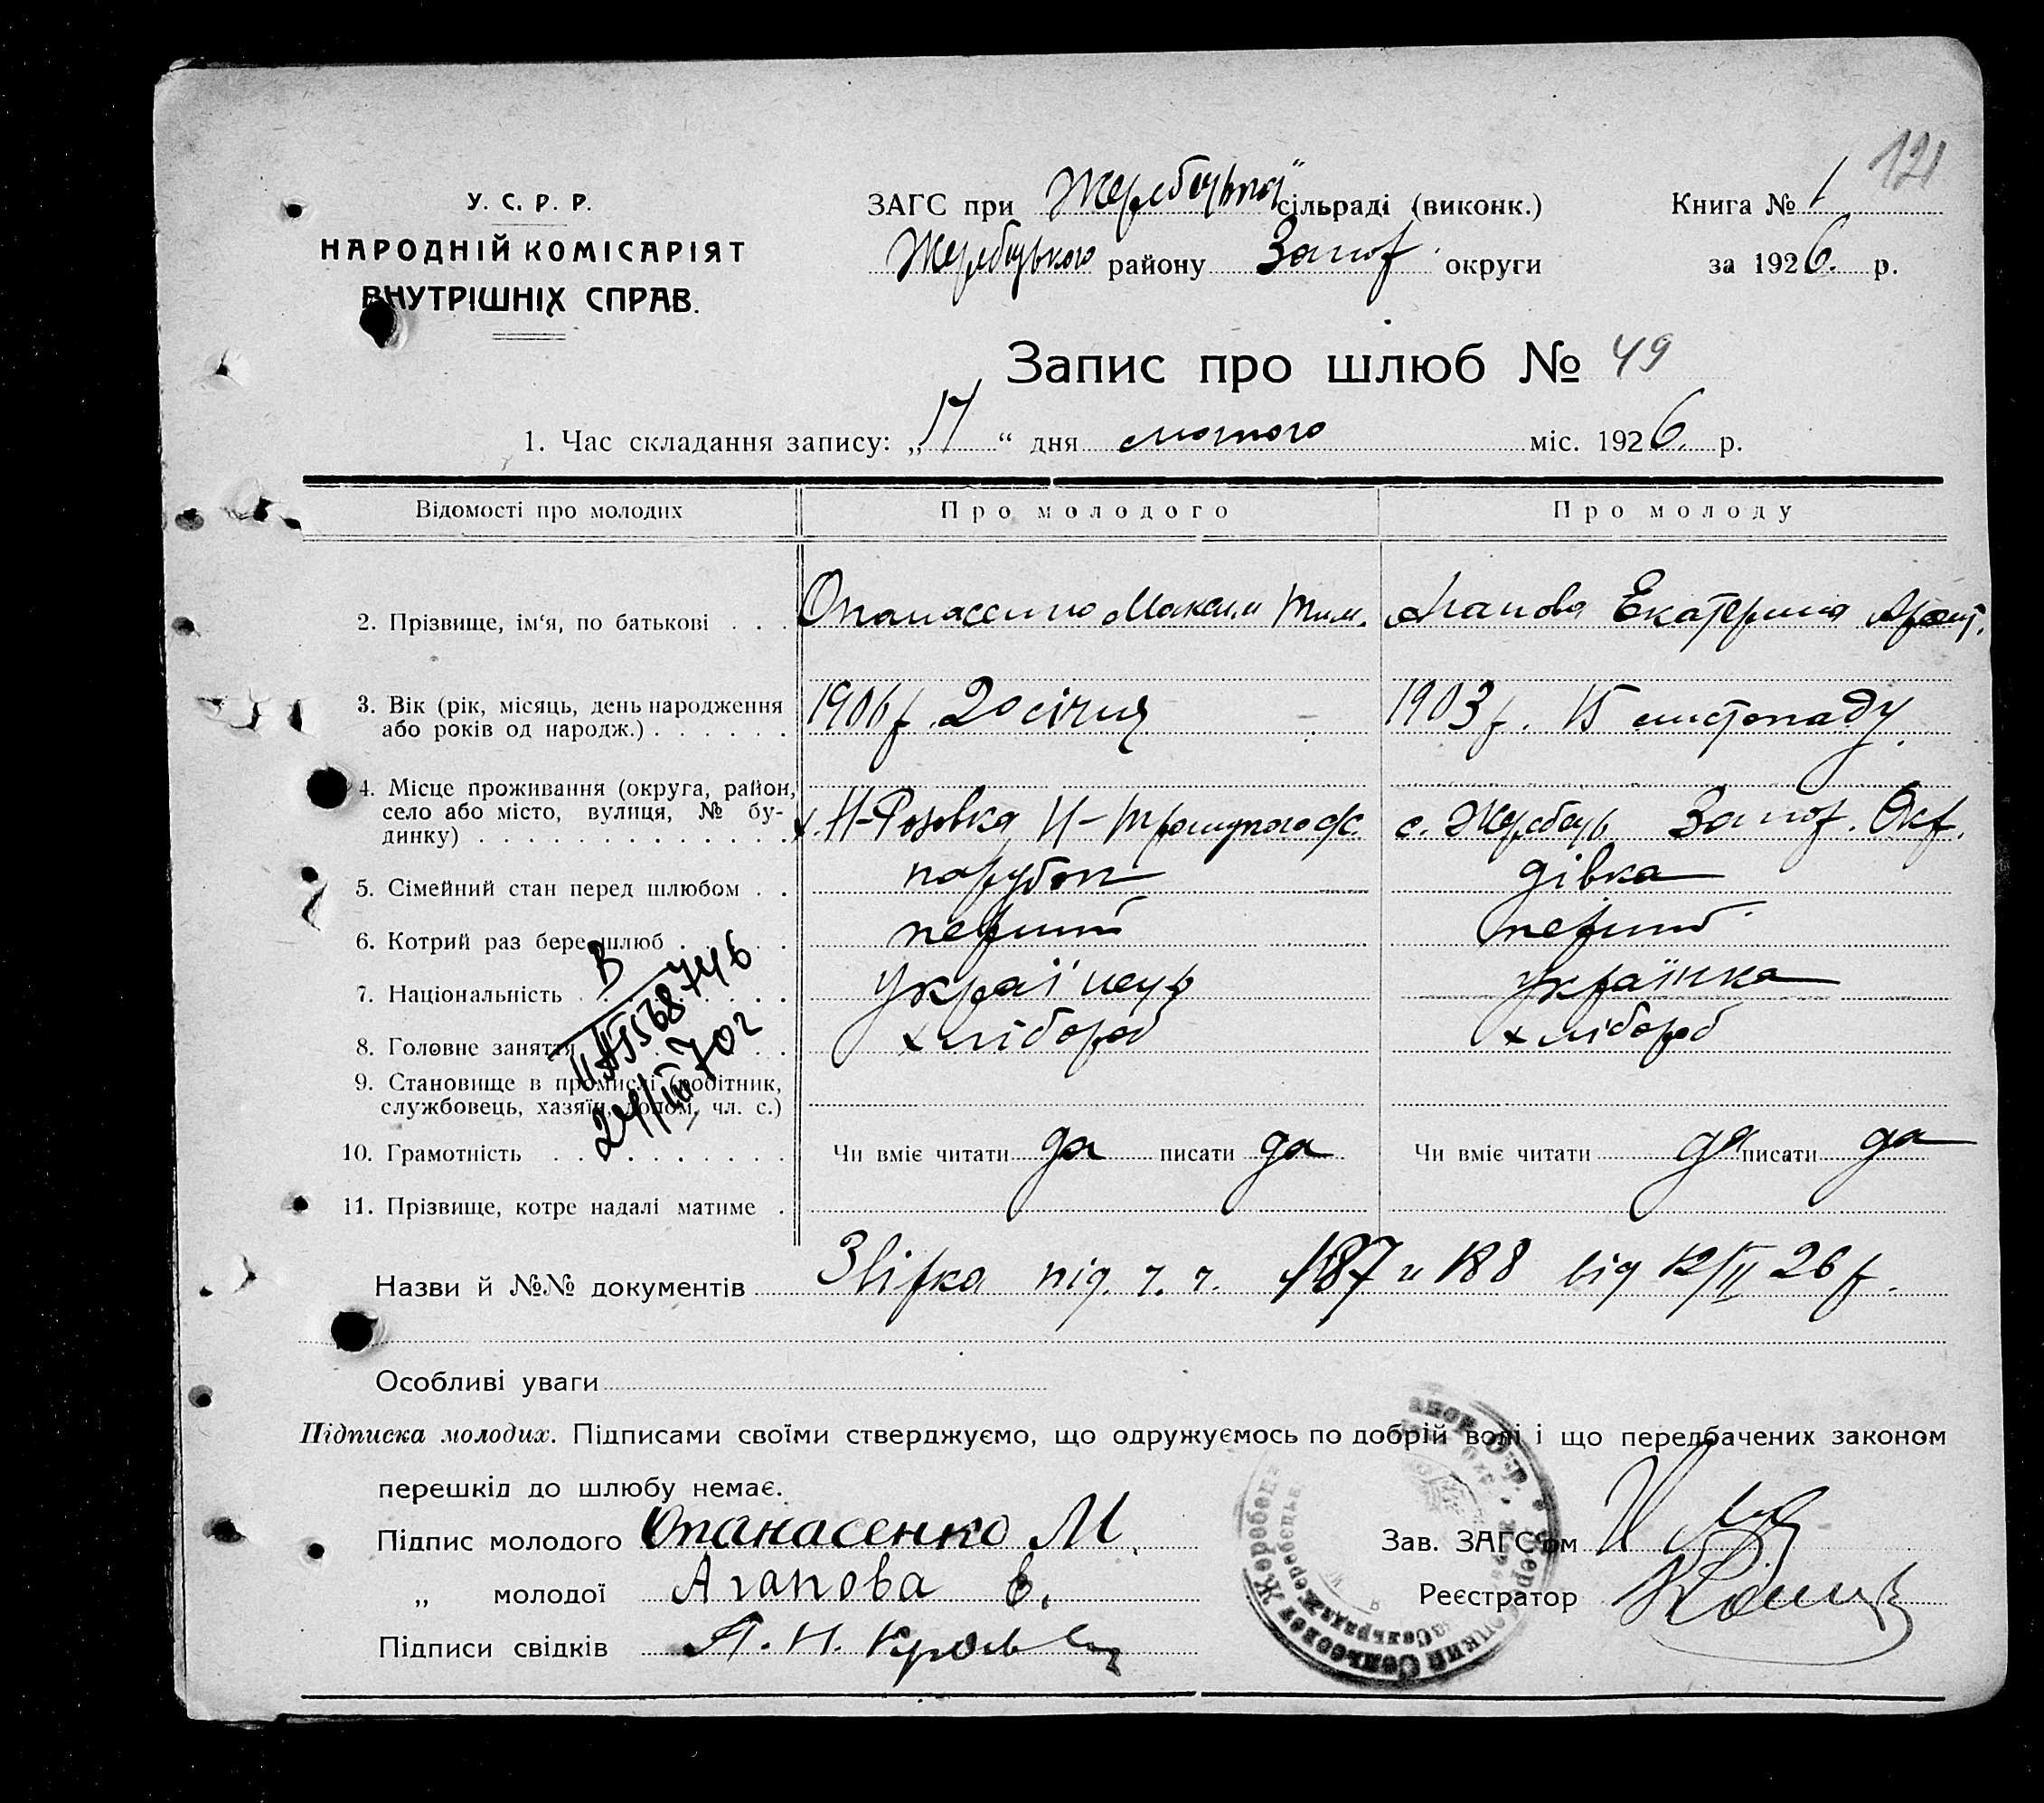 121
У. С. Р. Р.
НАРОДНІЙ КОМІСАРІЯТ
ВНУТРІШНІХ СПРАВ.
ЗАГС при Жеребецькій сільраді (виконк.)
Книга № 1
Жеребецького району Запор округи
за 1926. р.
Запис про шлюб № 49
1. Час складання запису: „17“ дня лютого міс. 1926. р.
Відомості про молодих
Про молодого
Про молоду
2. Прізвище, ім‘я, по батькові . . .
Опанасенко Максим Тим.
Агапова Екатерина
3. Вік (рік, місяць, день народження
або років од народж.) . . . . . .
1906 р. 20 січня
1903 р. 15 листопаду
4. Місце проживання (округа, район,
село або місто, вулиця, № бу-
динку) . . . . . . . . . . . . .
х. Н-Розовка
с. Жеребець Запор. Окр.
5. Сімейний стан перед шлюбом . .
парубок
дівка
6. Котрий раз бере шлюб . . . . .
перший
перший
7. Національність . . . . . . . . .
Українець
Українка
8. Головне заняття . . . . . . . .
хлібороб
хлібороб
9. Становище в промислі (робітник,
службовець, хазяїн, допом. чл. с.)
10. Грамотність . . . . . . . . . .
Чи вміє читати да писати да
Чи вміє читати да писати да
11. Прізвище, котре надалі матиме .
Назви й №№ документів Звірка під. ч. ч. 187 и 188 від 12/II 26 р.
Особливі уваги
Підписка молодих. Підписами своїми стверджуємо, що одружуємось по добрій волі і що передбачених законом
перешкід до шлюбу немає.
Підпис молодого Опанасенко М.
Зав. ЗАГС'ом
„ молодої Агапова Е.
Реєстратор
Підписи свідків